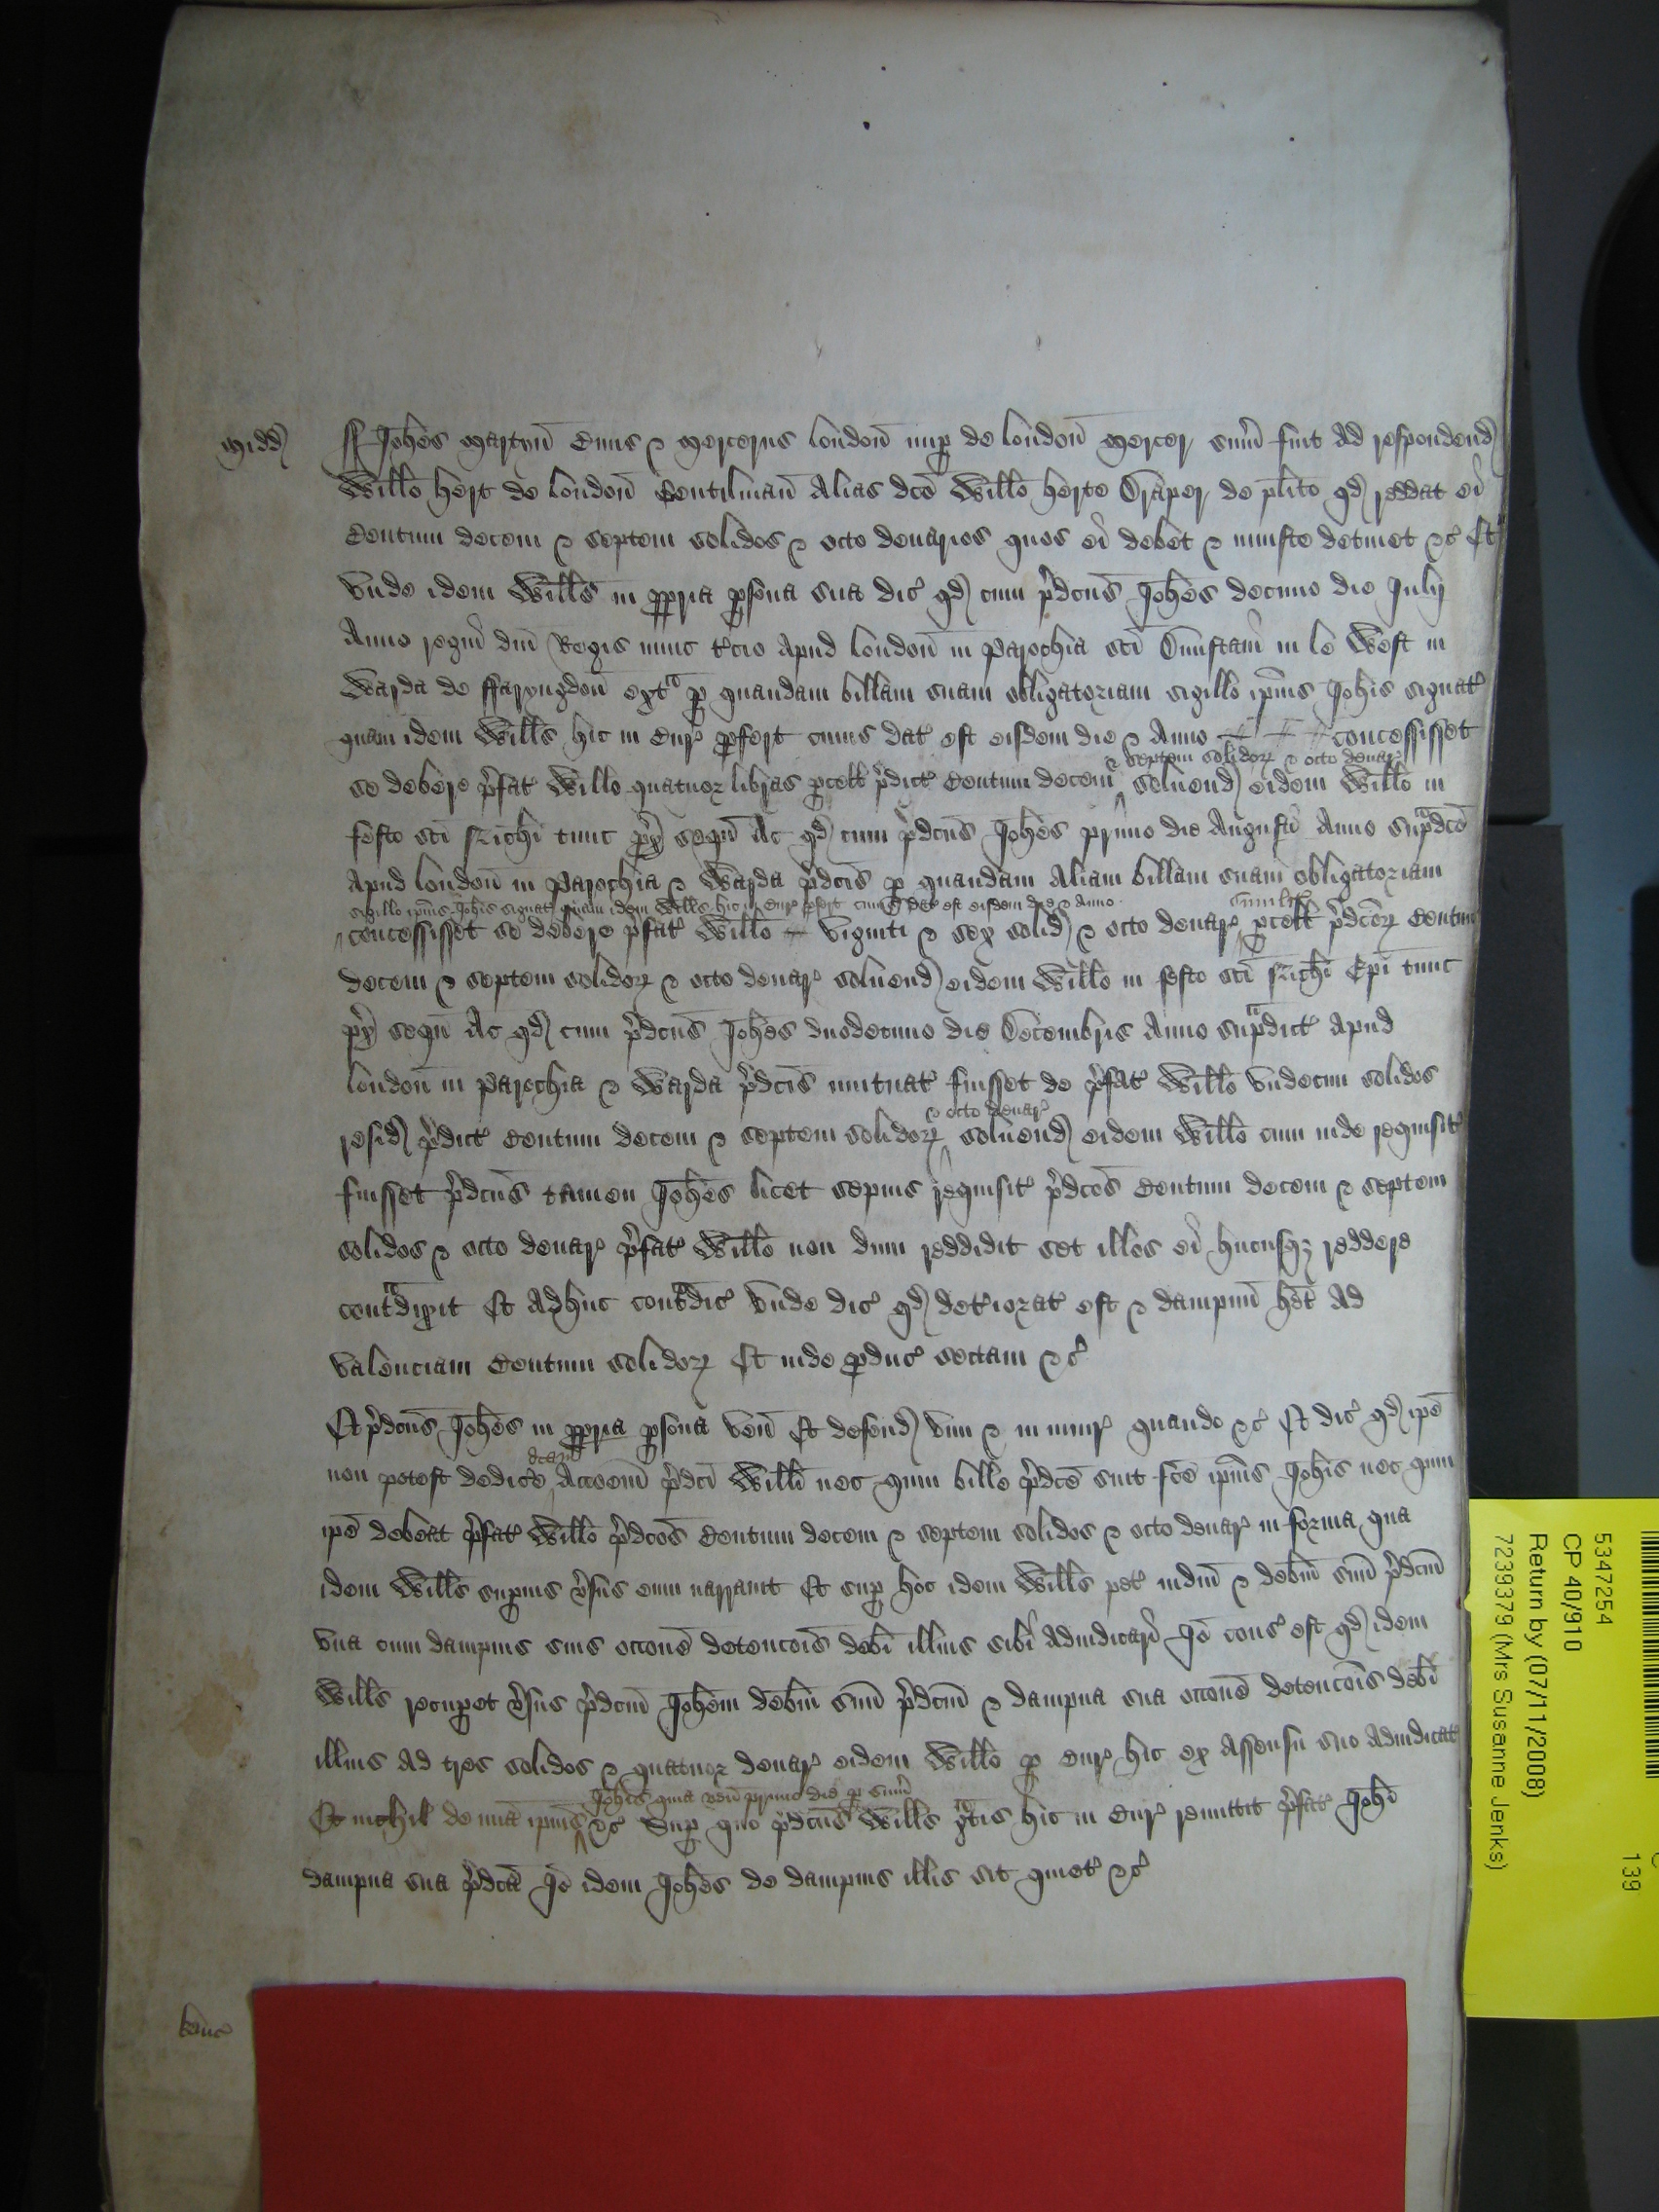 Midd
ss Joh̄es Martyn̄ Civis & Mercerus london̄ nup de london̄ Mercer sum̄ fuit ad respondend
Will̄o hert de london̄ Gentilman̄ alias dc̄o Will̄o herte Draper de pl̄ito qd reddat ei
Centum decem & septem solidos & octo denarios quos ei debet & iniuste detinet &c Et
vnde idem Will̄s in ppria psona sua dic qd cum p̄dcūs Joh̄es decimo die Julij
Anno regni dn̄i Regis nunc t'cio apud london̄ in parochia sc̄i Dunstani in le West in
Warda de ffaryngdon̄ extᵃ p quandam billam suam obligatoriam sigillo ip̄ius Joh̄is signat
quam idem Will̄s hic in Cur pfert cuius dat est eisdem die & Anno concessisset
& septem solidoꝝ & octo denar
se debere p̄fat Will̄o quatuor libras pcell p̄dict Centum decem solvend eidem Will̄o in
festo sc̄i Mich̄i tunc px sequ Ac qd cum p̄dcūs Joh̄es primo die Augusti Anno supᵃdc̄o
apud london̄ in parochia & Warda p̄dcīs p quandam aliam billam suam obligatoriam
sigillo ip̄ius Joh̄is signat quam idem Will̄s hic in Cur pfert cuius dat est eisdem die & Anno similit
concessisset se debere p̄fat Will̄o viginti & sex solid & octo denar pcell p̄dcōꝝ Centum
decem & septem solidoꝝ & octo denar solvend eidem Will̄o in festo sc̄i Ep̄i tunc
px sequ Ac qd cum p̄dcūs Joh̄es duodecimo die Decembris Anno supᵃdict apud
london̄ in parochia & Warda p̄dcīs mutuat fuisset de p̄fat Will̄o vndecim solidos
& octo denar
resid p̄dict Centum decem & septem solidoꝝ solvend eidem Will̄o cum inde requisit
fuisset p̄dcūs tamen Joh̄es licet sepius requisit p̄dcōs Centum decem & septem
solidos & octo denar p̄fat Will̄o non dum reddidit set illos ei hucusqꝫ reddere
contᵃdixit Et adhuc contᵃdic vnde dic qd det'iorat est & dampnū h̄et ad
valenciam Centum solidoꝝ Et inde pduc sectam &c
Et p̄dcūs Joh̄es in ppria psona ven̄ Et defend vim & iniur quando &c Et dic qd ip̄e
dcām
non potest dedic'e Acc̄oem p̄dcī Will̄i nec quin bille p̄dcē sint fc̄m ip̄ius Joh̄is nec quin
ip̄e debeat p̄fat Will̄o p̄dcōs Centum decem & septem solidos & octo denar in forma qua
idem Will̄s supius v'sus eum narravit Et sup hoc idem Will̄s pet iudm̄ & debm̄ suū p̄dcūm
vna cum dampnis suis occ̄one detenc̄ois deb̄i illius sibi adiudicari Jo cons est qd idem
Will̄s recupet v'sus p̄dcūm Joh̄em deb̄m suū p̄dcūm & dampna sua occ̄one detenc̄ois deb̄i
illius ad tres solidos & quatuor denar eidem Will̄o p Cur hic ex assensu suo adiudicat
Joh̄is quia ven̄ primo die p sum̄
Et nichil de mīa ip̄ius &c Sup quo p̄dcūs Will̄s gᵃtis hic in Cur remittit p̄fat Joh̄i
dampna sua p̄dcā Jo idem Joh̄es de dampnis illis sit quiet &c
5347254
CP 40/910
Return by (07/11/2008)
7239379 (Mrs Susanne Jenks)
139